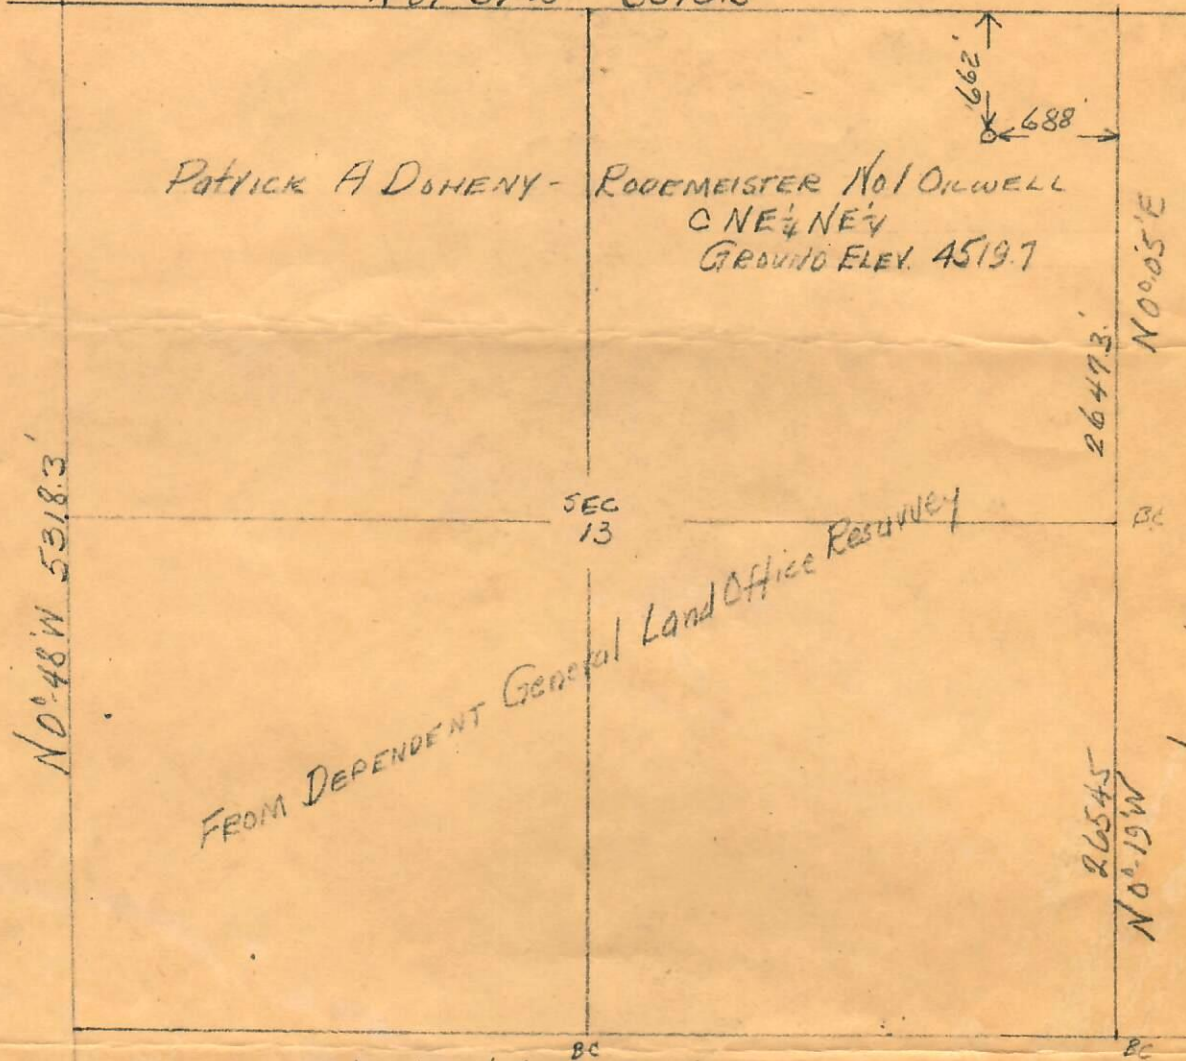 662'
688'
Patrick A Doheny - Rodemeister No 1 Oilwell
C NE¼ NE¼
Ground Elev. 4519.7
N0°05'E
2647.3'
N0°-48'W 5318.3'
SEC
13
BC
From Dependent General Land Office Resurvey
2654.5
N0°-19'W
BC
BC